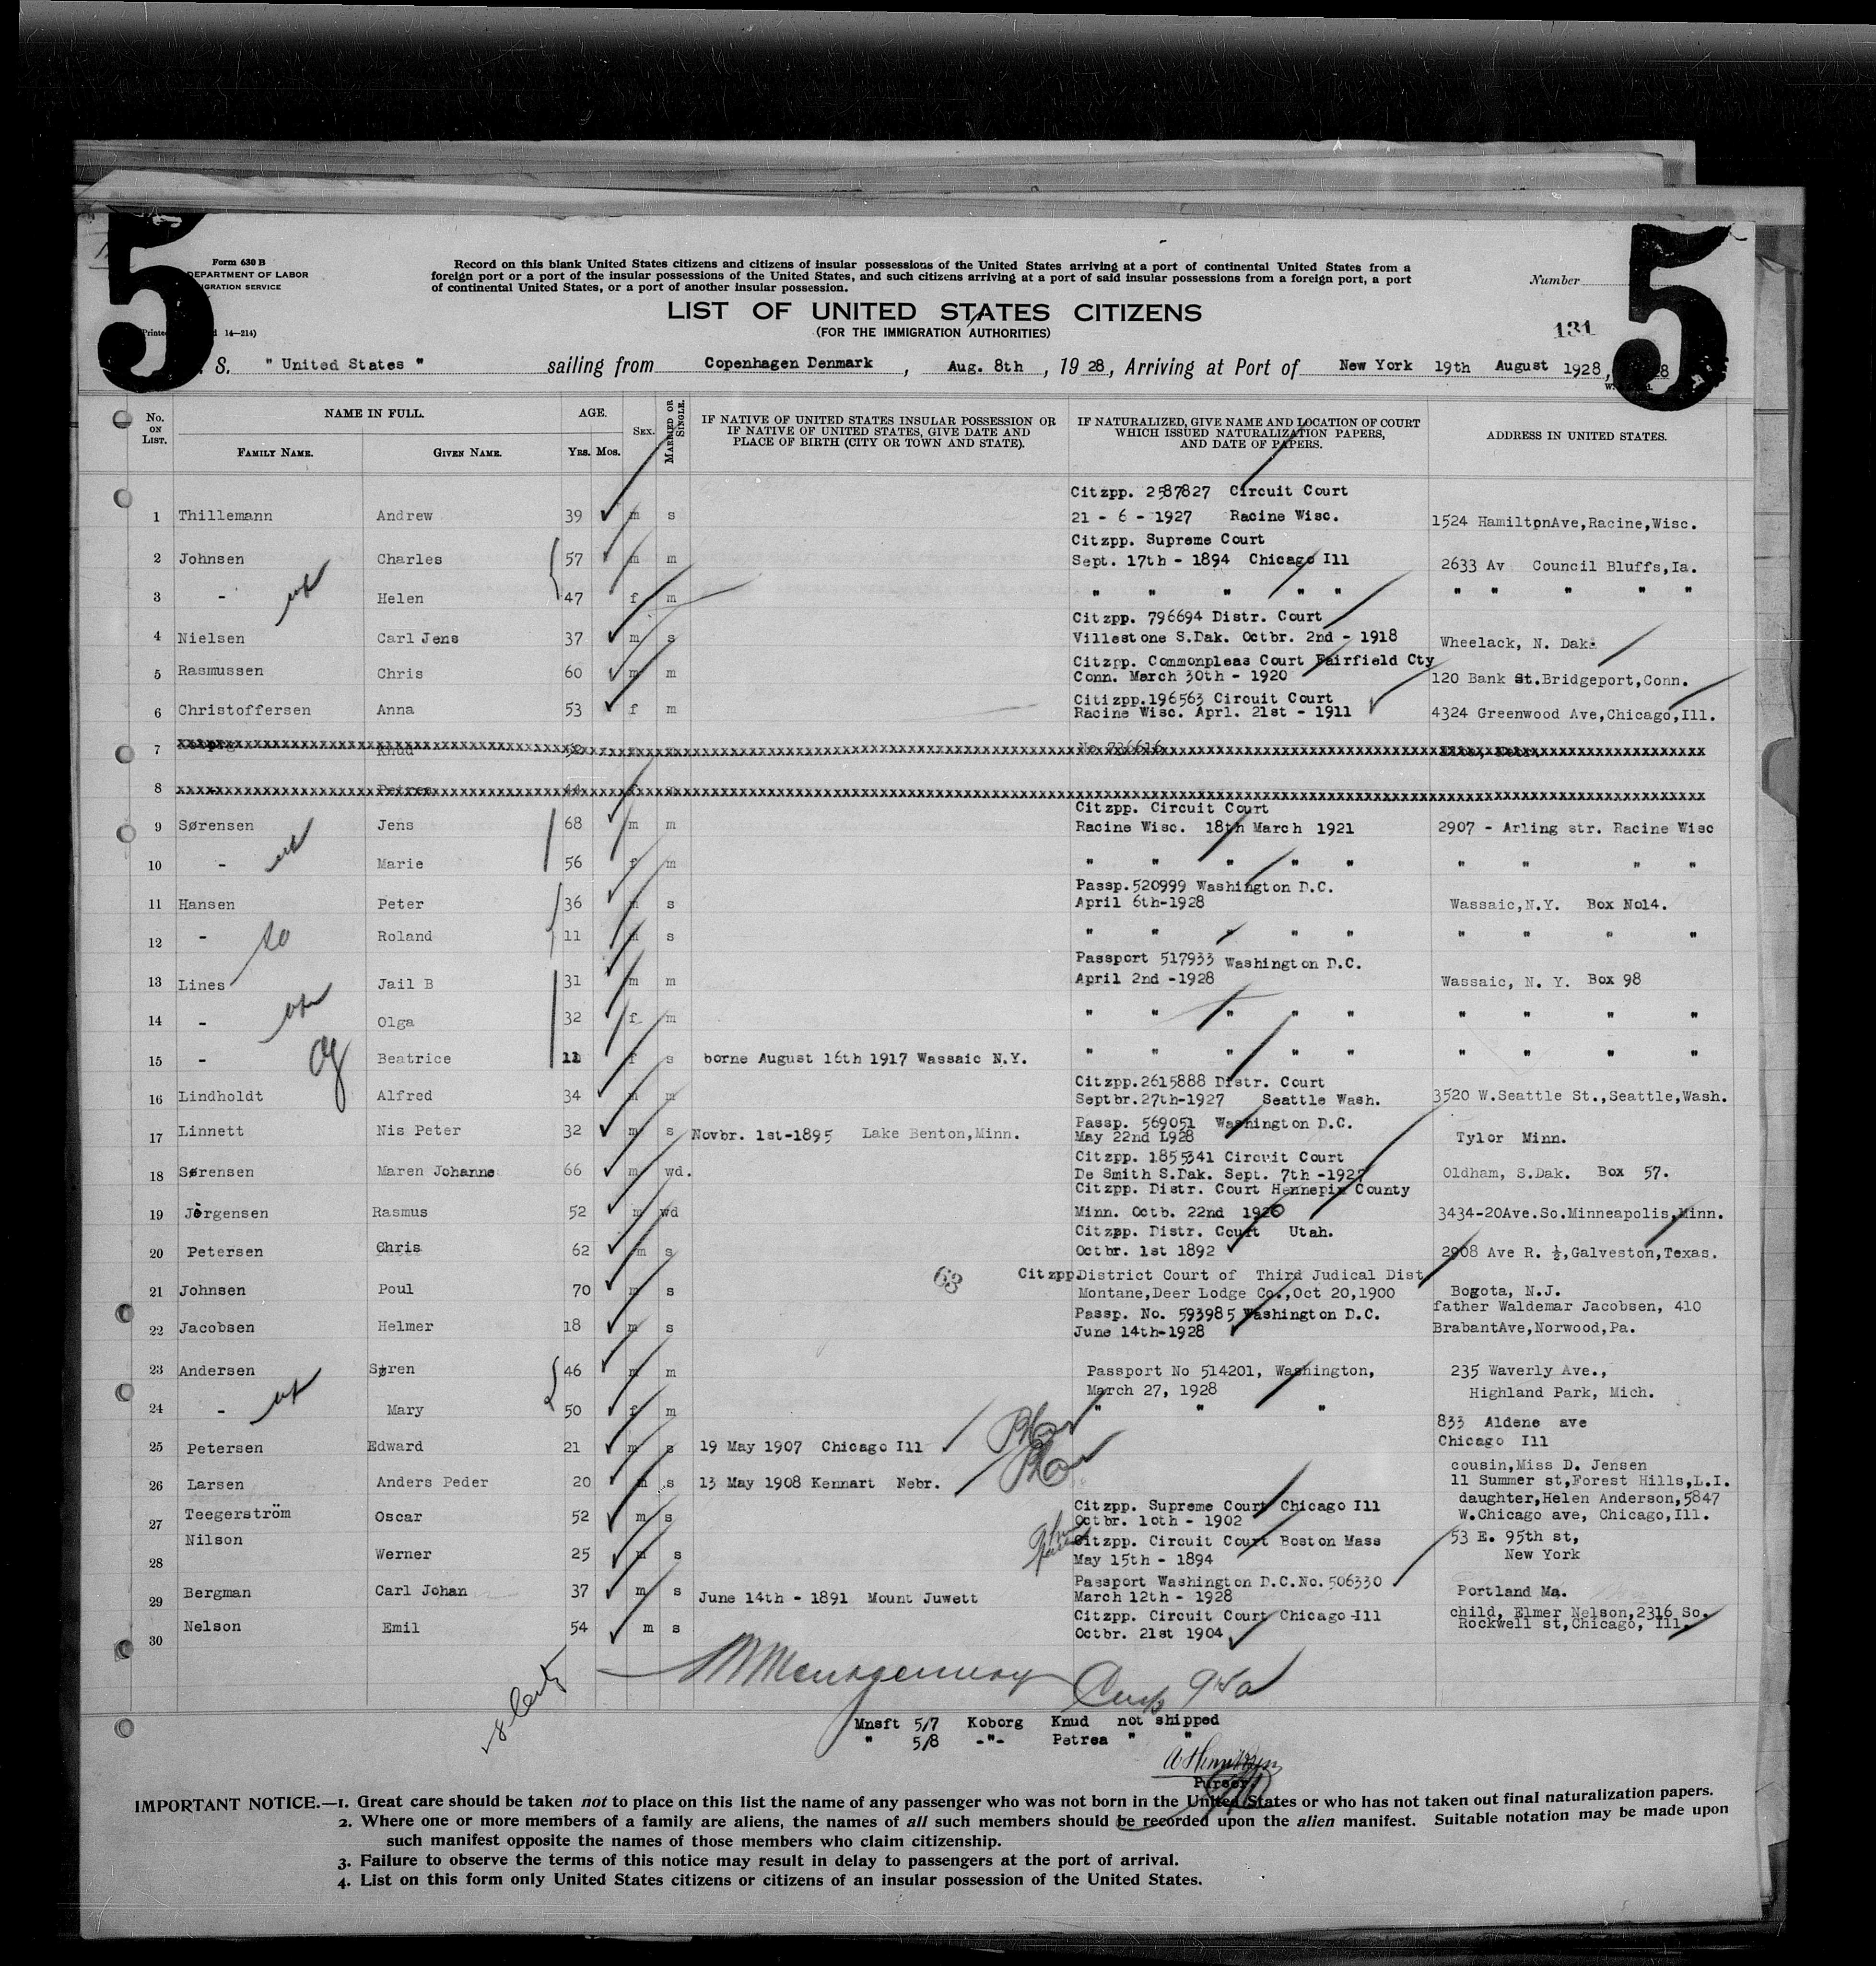 5
5
Form 630 B
DEPARTMENT OF LABOR
IGRATION SERVICE
Record on this blank United States citizens and citizens of insular possessions of the United States arriving at a port of continental United States from a
foreign port or a port of the insular possessions of the United States, and such citizens arriving at a port of said insular possessions from a foreign port, a port
of continental United States, or a port of another insular possession.
Number
LIST OF UNITED STATES CITIZENS
(FOR THE IMMIGRATION AUTHORITIES)
14—214)
131
S. " United States " sailing from Copenhagen Denmark , Aug. 8th , 19 28 , Arriving at Port of New York 19th August 1928,
No. ON LIST. NAME IN FULL. AGE. SEX. MARRIED OR SINGLE. IF NATIVE OF UNITED STATES INSULAR POSSESSION OR IF NATIVE OF UNITED STATES, GIVE DATE AND PLACE OF BIRTH (CITY OR TOWN AND STATE). IF NATURALIZED, GIVE NAME AND LOCATION OF COURT WHICH ISSUED NATURALIZATION PAPERS, AND DATE OF PAPERS. ADDRESS IN UNITED STATES.
FAMILY NAME. GIVEN NAME. YRS. MOS.
Citzpp. 2587827 Circuit Court
1 Thillemann Andrew 39 m s 21 - 6 - 1927 Racine Wisc. 1524 HamiltonAve,Racine,Wisc.
Citzpp. Supreme Court
2 Johnsen Charles 57 m m Sept. 17th - 1894 Chicago Ill 2633 Av Council Bluffs,Ia.
3 - Helen 47 f m " " " " " " " " " "
Citzpp. 796694 Distr. Court
4 Nielsen Carl Jens 37 m s Villestone S.Dak. Octbr. 2nd - 1918 Wheelack, N. Dak.
Citzpp. Commonpleas Court Fairfield Cty
5 Rasmussen Chris 60 m m Conn. March 30th - 1920 120 Bank St.Bridgeport,Conn.
Citizpp.196563 Circuit Court
6 Christoffersen Anna 53 f m Racine Wisc. Aprl. 21st - 1911 4324 Greenwood Ave,Chicago,Ill.
7 Knud
8 Petrea
Citzpp. Circuit Court
9 Sørensen Jens 68 m m Racine Wisc. 18th March 1921 2907 - Arling str. Racine Wisc
10 - Marie 56 f m " " " " " " " " "
Passp.520999 Washington D.C.
11 Hansen Peter 36 m s April 6th-1928 Wassaic,N.Y. Box No14.
12 - Roland 11 m s " " " " " " " " "
Passport 517933 Washington D.C.
13 Lines Jail B 31 m m April 2nd -1928 Wassaic, N. Y. Box 98
14 - Olga 32 f m " " " " " " " " "
15 - Beatrice 11 f s borne August 16th 1917 Wassaic N.Y. " " " " " " " " "
Citzpp.2615888 Distr. Court
16 Lindholdt Alfred 34 m m Septbr.27th-1927 Seattle Wash. 3520 W.Seattle St.,Seattle,Wash.
Passp. 569051 Washington D.C.
17 Linnett Nis Peter 32 m s Novbr. 1st-1895 Lake Benton,Minn. May 22nd 1928 Tylor Minn.
Citzpp. 1855341 Circuit Court
18 Sørensen Maren Johanne 66 m wd. De Smith S.Dak. Sept. 7th -1927 Oldham, S.Dak. Box 57.
Citzpp. Distr. Court Hennepin County
19 Jørgensen Rasmus 52 m wd Minn. Octb. 22nd 1920 3434-20Ave.So.Minneapolis,Minn.
Citzpp. Distr. Court Utah.
20 Petersen Chris 62 m s Octbr. 1st 1892 2908 Ave R. ½,Galveston,Texas.
68 Citzpp.District Court of Third Judical Dist
21 Johnsen Poul 70 m s Montane,Deer Lodge Co.,Oct 20,1900 Bogota, N.J.
Passp. No. 593985 Washington D.C. father Waldemar Jacobsen, 410
22 Jacobsen Helmer 18 m s June 14th-1928 BrabantAve,Norwood,Pa.
23 Andersen Søren 46 m m Passport No 514201, Washington, 235 Waverly Ave.,
March 27, 1928 Highland Park, Mich.
24 - Mary 50 f m " " "
833 Aldene ave
25 Petersen Edward 21 m s 19 May 1907 Chicago Ill Chicago Ill
cousin,Miss D. Jensen
26 Larsen Anders Peder 20 m s 13 May 1908 Kennart Nebr. 11 Summer st,Forest Hills,L.I.
Citzpp. Supreme Court Chicago Ill daughter,Helen Anderson,5847
27 Teegerström Oscar 52 m s Octbr. 10th - 1902 W.Chicago ave, Chicago,Ill.
Nilson Citzpp. Circuit Court Boston Mass 53 E. 95th st,
28 Werner 25 m s May 15th - 1894 New York
Passport Washington D.C.No.506330
29 Bergman Carl Johan 37 m s June 14th - 1891 Mount Juwett March 12th - 1928 Portland Ma.
Citzpp. Circuit Court Chicago-Ill child, Elmer Nelson,2316 So.
30 Nelson Emil 54 m s Octbr. 21st 1904 Rockwell st,Chicago, Ill.
Mnsft 5/7 Koborg Knud not shipped
" 5/8 -"- Petrea " "
Purser
IMPORTANT NOTICE.—1. Great care should be taken not to place on this list the name of any passenger who was not born in the United States or who has not taken out final naturalization papers.
2. Where one or more members of a family are aliens, the names of all such members should be recorded upon the alien manifest. Suitable notation may be made upon
such manifest opposite the names of those members who claim citizenship.
3. Failure to observe the terms of this notice may result in delay to passengers at the port of arrival.
4. List on this form only United States citizens or citizens of an insular possession of the United States.